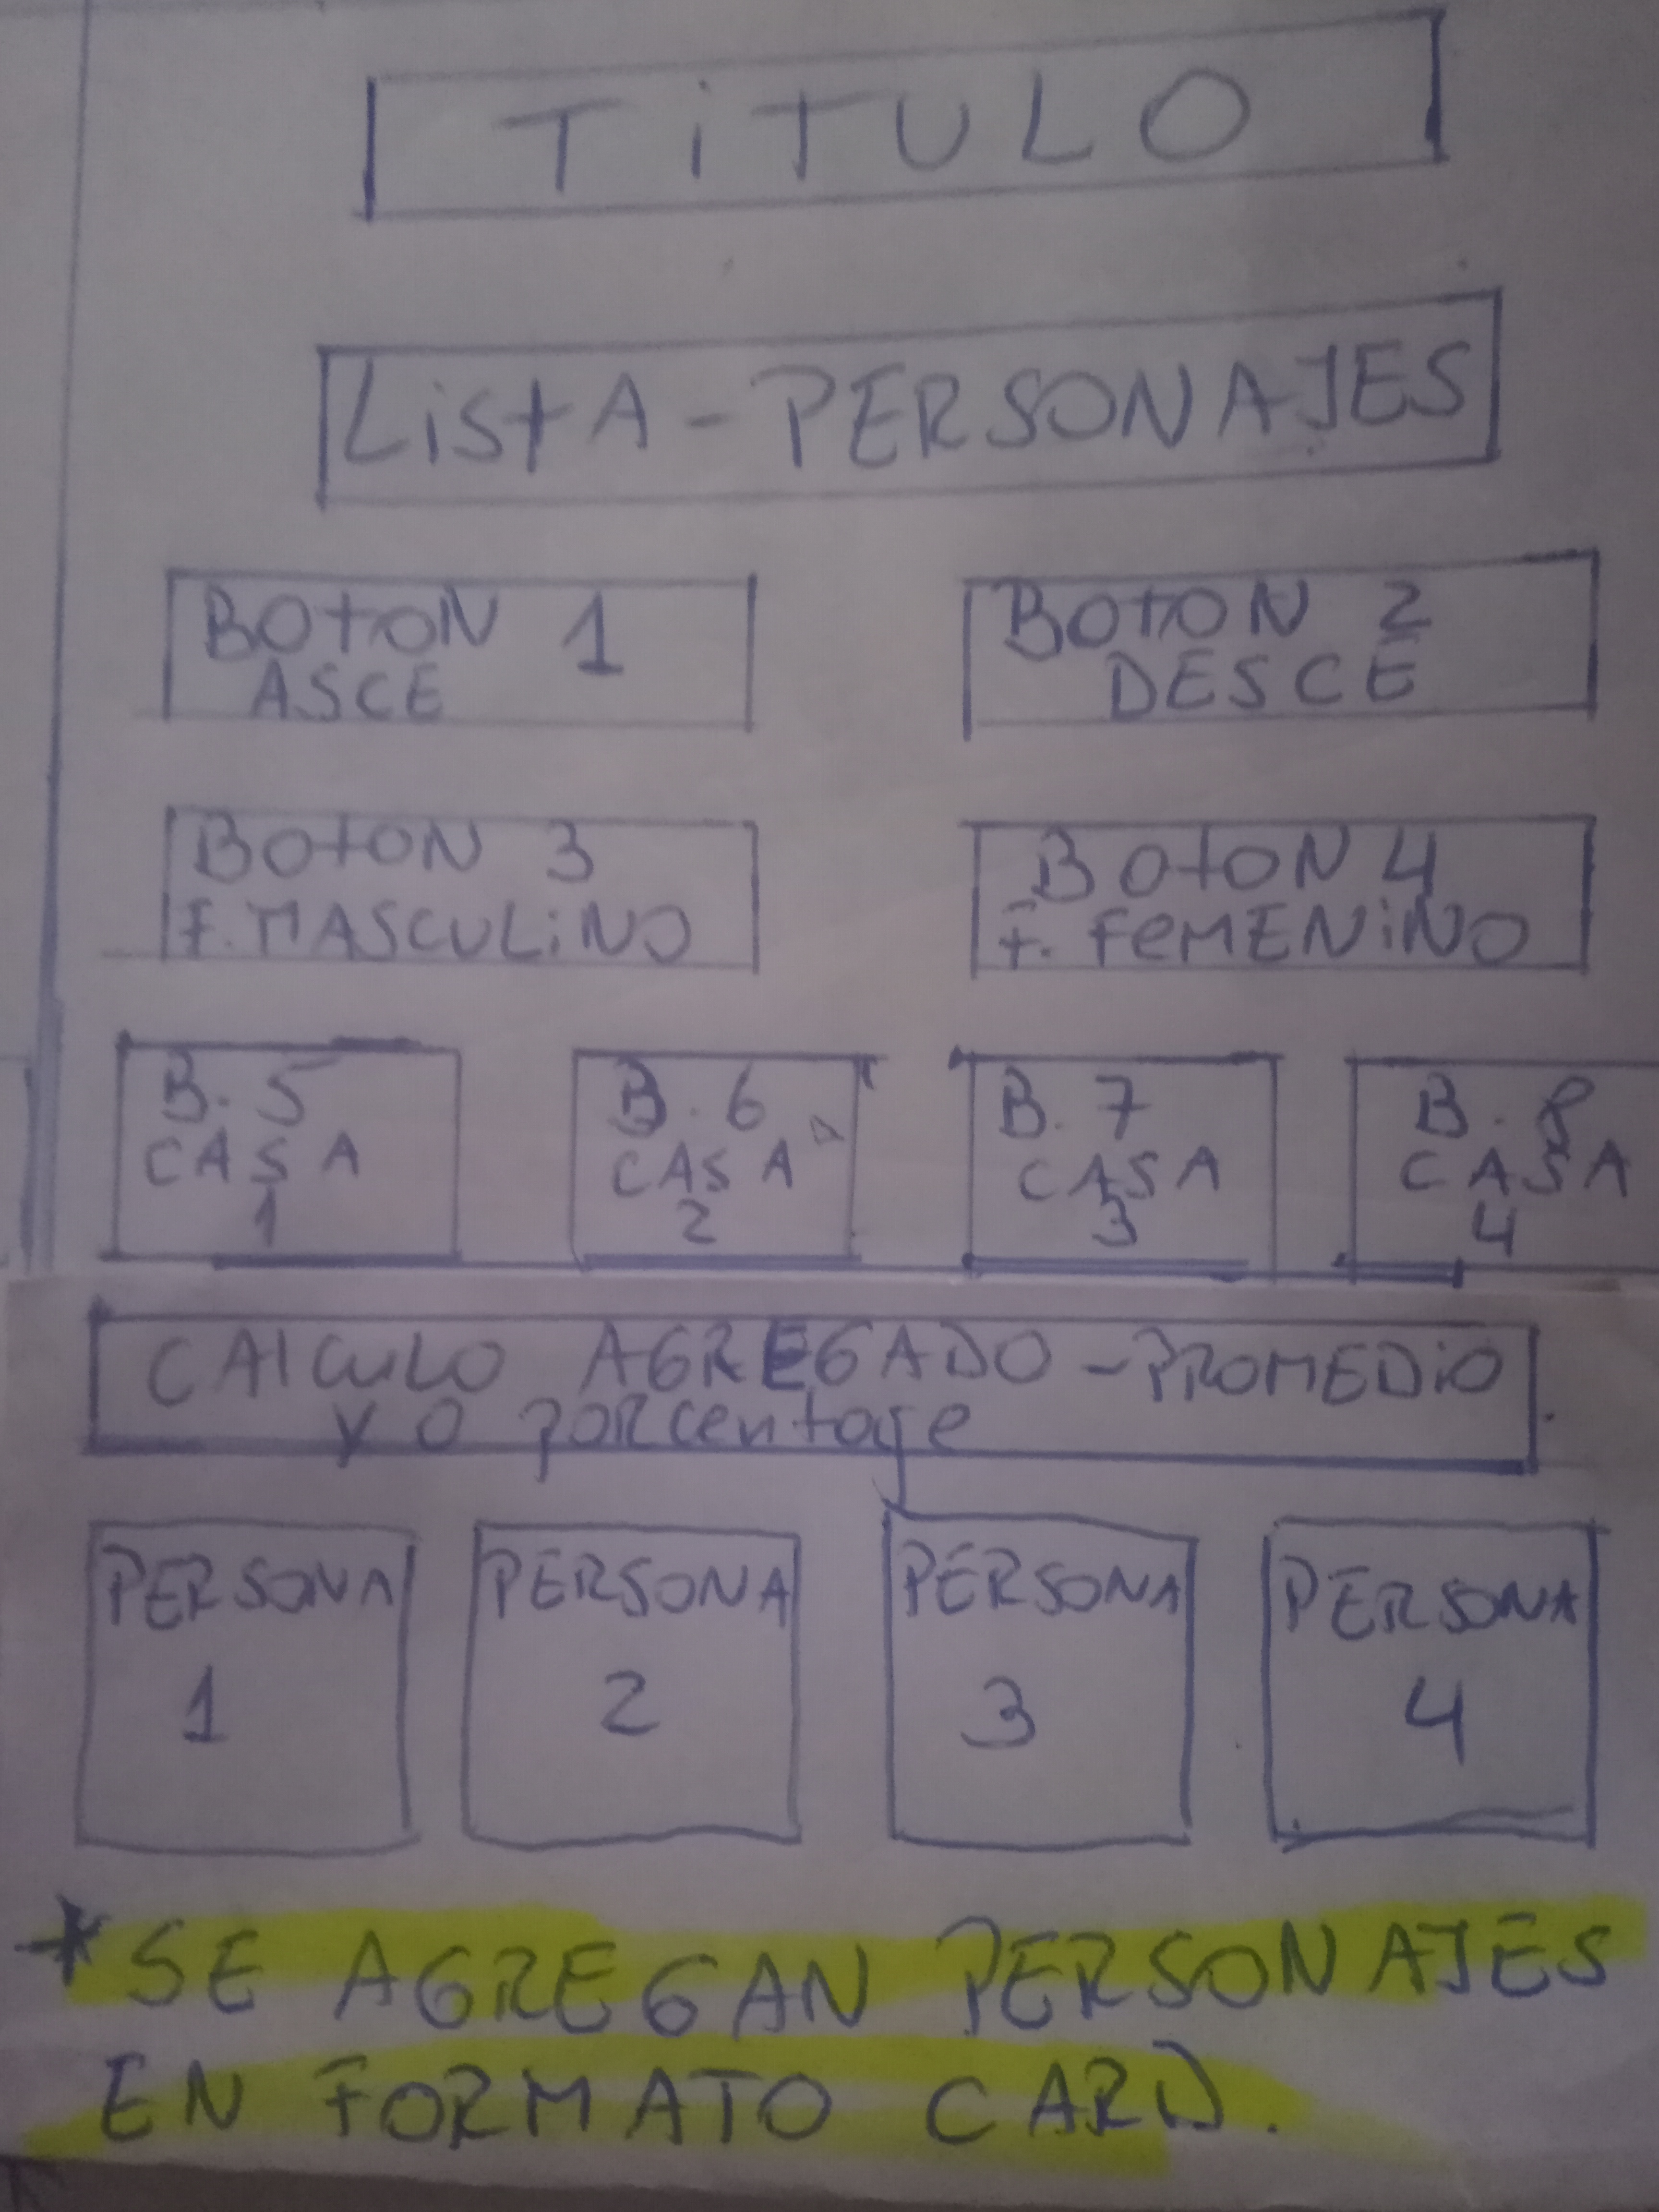 TiTULO
LiStA - PERSONAJES
BOtON 1
ASCE
BOtON 2
DESCE
BOtON 3
F. MASCULiNO
BOtON 4
F. FeMENiNO
B. 5
CASA
1
B. 6
CASA
2
B. 7
CASA
3
B. 8
CASA
4
CAlCuLO AGREGADO - PROMEDiO
y o porcentaje
PERSONA
1
PERSONA
2
PERSONA
3
PERSONA
4
* SE AGREGAN PERSONAJES
EN FORMATO CARD.